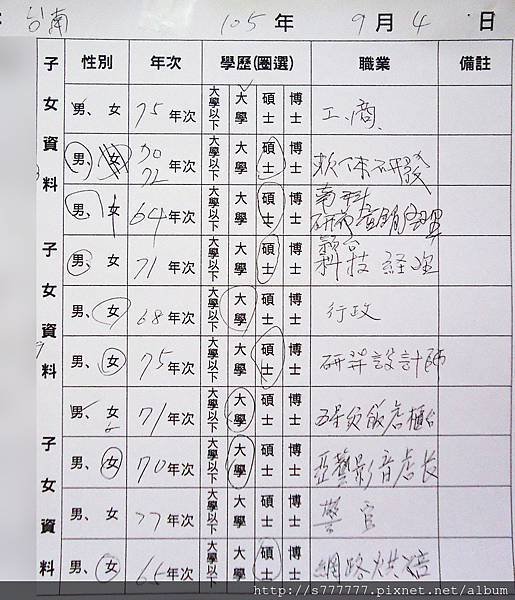 台南 105 年 9 月 4 日
子女資料 性別 年次 學歷(圈選) 職業 備註
男、女 75 年次 大學以下 大學 碩士 博士 工、商
男、女 70 72 年次 大學以下 大學 碩士 博士 軟体研發
男、女 64 年次 大學以下 大學 碩士 博士 南科
子女資料 男、女 71 年次 大學以下 大學 碩士 博士 科技 経理
男、女 68 年次 大學以下 大學 碩士 博士 行政
男、女 75 年次 大學以下 大學 碩士 博士 研發設計師
男、女 71 年次 大學以下 大學 碩士 博士 五星級飯店櫃台
子女資料 男、女 70 年次 大學以下 大學 碩士 博士 亞藝影音店长
男、女 77 年次 大學以下 大學 碩士 博士 警官
男、女 65 年次 大學以下 大學 碩士 博士 網路烘焙
http://s777777.pixnet.net/album